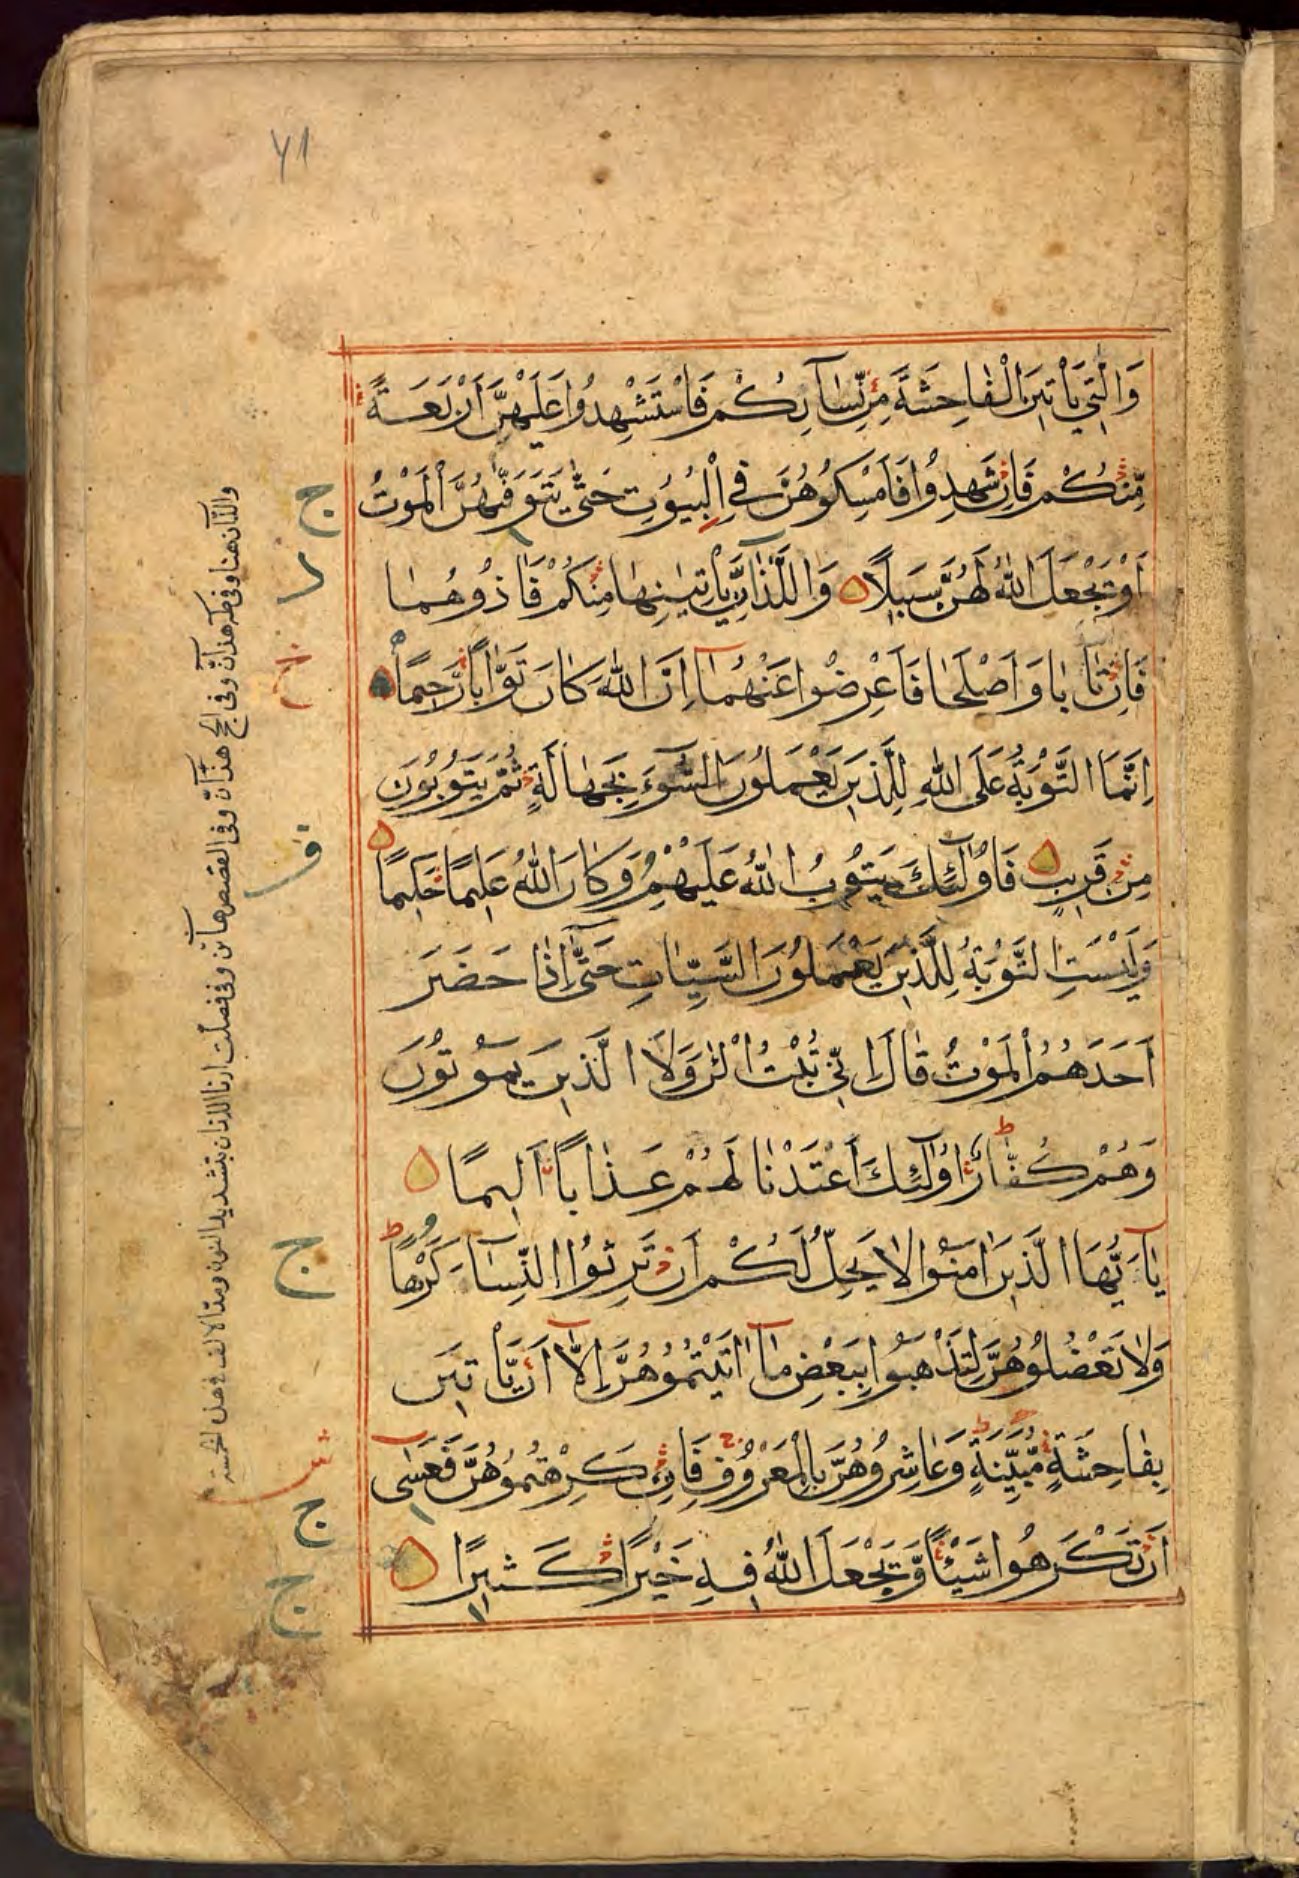 ٧١
وَالّٰتِي يَأْتِينَ الْفَاحِشَةَ مِنْ نِّسَآئِكُمْ فَاسْتَشْهِدُوا عَلَيْهِنَّ اَرْبَعَةً
مِّنْكُمْ فَاِنْ شَهِدُوْا فَاَمْسِكُوْهُنَّ فِي الْبُيُوْتِ حَتّٰى يَتَوَفّٰىهُنَّ الْمَوْتُ
اَوْ يَجْعَلَ اللّٰهُ لَهُنَّ سَبِيْلًا وَاللَّذٰانِّ يَأْتِيٰنِهَا مِنْكُمْ فَاٰذُوْهُمَا
فَاِنْ تَابَا وَاَصْلَحَا فَاَعْرِضُوْا عَنْهُمَا اِنَّ اللّٰهَ كَانَ تَوَّابًا رَّحِيْمًا
اِنَّمَا التَّوْبَةُ عَلَى اللّٰهِ لِلَّذِيْنَ يَعْمَلُوْنَ السُّوْٓءَ بِجَهَالَةٍ ثُمَّ يَتُوْبُوْنَ
مِنْ قَرِيْبٍ فَاُولٰٓئِكَ يَتُوْبُ اللّٰهُ عَلَيْهِمْ وَكَانَ اللّٰهُ عَلِيْمًا حَكِيْمًا
وَلَيْسَتِ التَّوْبَةُ لِلَّذِيْنَ يَعْمَلُوْنَ السَّيِّاٰتِ حَتّٰى اِذَا حَضَرَ
اَحَدَهُمُ الْمَوْتُ قَالَ اِنِّي تُبْتُ الْئٰنَ وَلَا الَّذِيْنَ يَمُوْتُوْنَ
وَهُمْ كُفَّارٌ اُولٰٓئِكَ اَعْتَدْنَا لَهُمْ عَذَابًا اَلِيْمًا
يَآءَيُّهَا الَّذِيْنَ اٰمَنُوْا لَا يَحِلُّ لَكُمْ اَنْ تَرِثُوا النِّسَآءَ كَرْهًا
وَلَا تَعْضُلُوْهُنَّ لِتَذْهَبُوْا بِبَعْضِ مَآ اٰتَيْتُمُوْهُنَّ اِلَّآ اَنْ يَّأْتِيْنَ
بِفَاحِشَةٍ مُّبَيِّنَةٍ وَعَاشِرُوْهُنَّ بِالْمَعْرُوْفِ فَاِنْ كَرِهْتُمُوْهُنَّ فَعَسٰى
اَنْ تَكْرَهُوْا شَيْئًا وَّيَجْعَلَ اللّٰهُ فِيْهِ خَيْرًا كَثِيْرًا
ج
ج
ج
ج
واللذآن هنا وفى طه هذآن وفى الحج هذآن وفى القصص هاتين وفى فصلت ارنا اللذين بتشديد النون ومد الالف فى هذه الخمسة